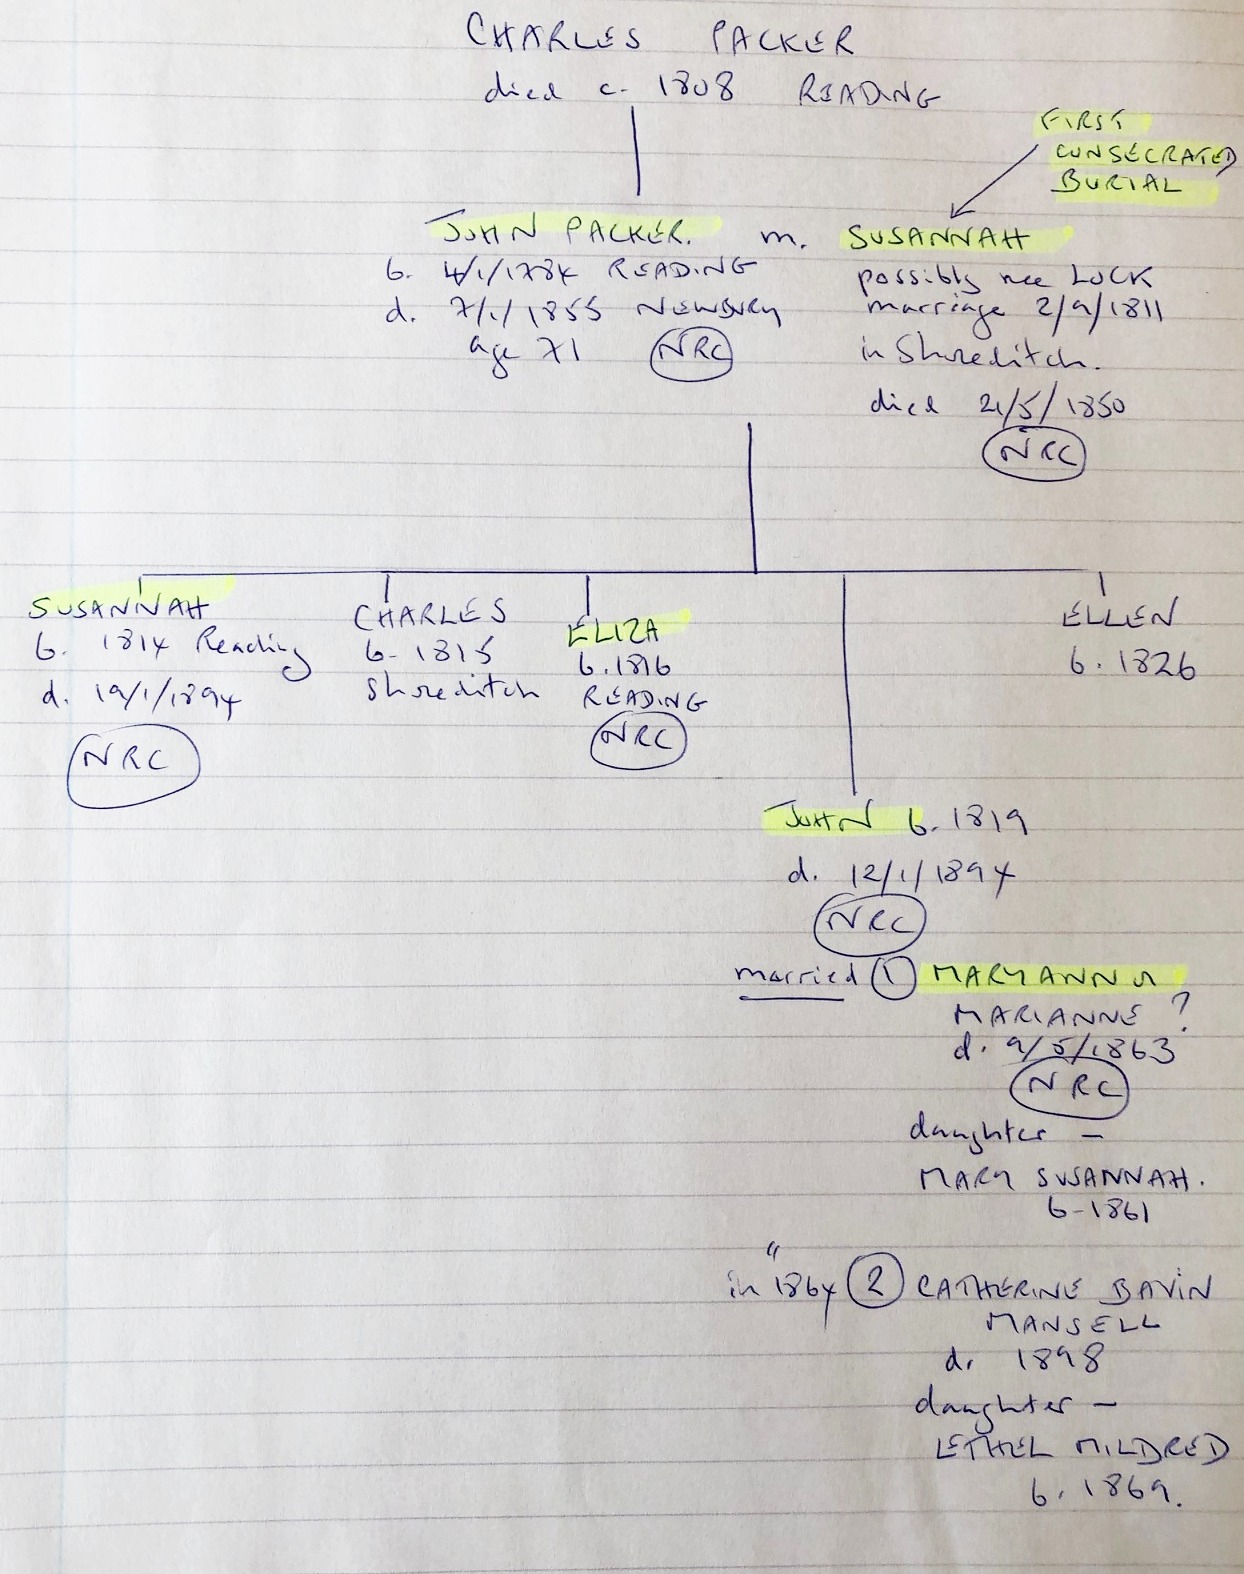 CHARLES PACKER
died c. 1808 READING
FIRST
CONSECRATED
BURIAL
JOHN PACKER. m. SUSANNAH
b. 4/1/1784 READING
d. 7/1/1855 NEWBURY
age 71 NRC
possibly nee LOCK
marriage 2/9/1811
in Shoreditch.
died 21/5/1850
NRC
SUSANNAH
b. 1814 Reading
d. 19/1/1894
NRC
CHARLES
b- 1815
Shoreditch
ELIZA
b. 1816
READING
NRC
ELLEN
b. 1826
JOHN b. 1819
d. 12/1/1894
NRC
married 1 MARY ANN or
MARIANNE ?
d. 9/5/1863
NRC
daughter –
MARY SUSANNAH.
b- 1861
"
in 1864 2 CATHERINE BAVIN
MANSELL
d. 1898
daughter –
ETHEL MILDRED
b. 1869.